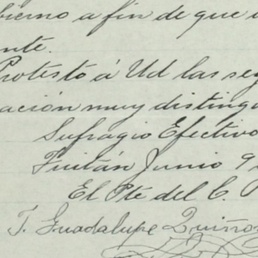 bierno a fin de que
nte.
Protesto á Ud las seg
ación muy disting
Sufragio Efectivo
Juní 9
El Pte del C. P
J. Guadalupe Quiño